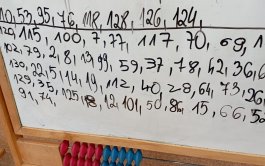 10, 59, 95, 76, 118, 128, 126, 124,
115, 100, 7, 77, 117, 70, 69,
102, 79, 2, 8, 13, 99, 59, 37, 78, 62, 36,
130, 22, 5, 14, 19, 112, 40, 28, 64, 73, 26
129, 35, 125, 12, 101, 50, 86, 15, 66,
91, 74,